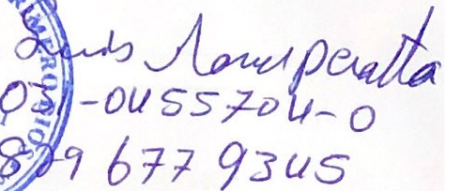 Luis Manuel Peralta
0 -0455704-0
809 677 9345